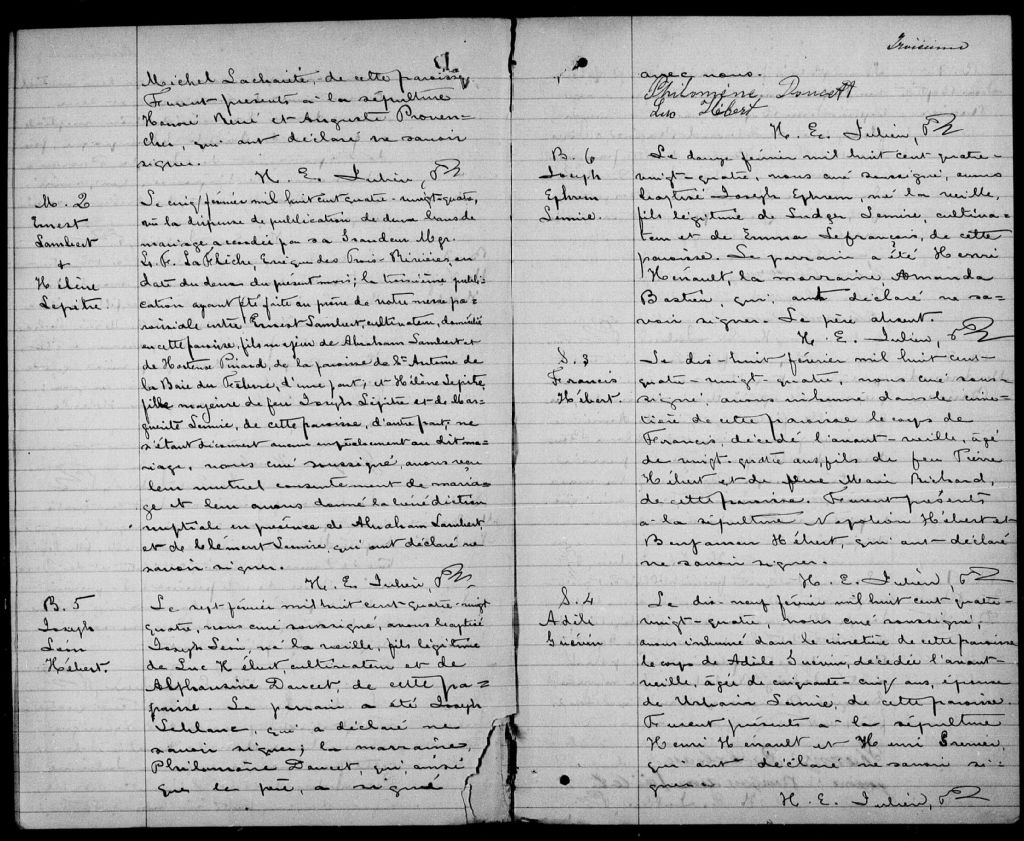 Michel Lacharité, de cette paroisse.
Furent présents à la sépulture
Honoré René et Auguste Proven-
cher, qui ont déclaré ne savoir
signer.
H. E. Julien, Ptr
M. 2
Ernest
Lambert
+
Hélène
Lepitre.
Le cinq février mil huit cent quatre-vingt-quatre,
vu la dispense de publication de deux bans de
mariage accordée par sa Grandeur Mgr.
L. F. Laflèche, Evêque des Trois-Rivières, en
date du deux du présent mois; la troisième publi-
cation ayant été faite au prône de notre messe pa-
roissiale entre Ernest Lambert, cultivateur, domicilié
en cette paroisse, fils majeur de Abraham Lambert et
de Hortense Pinard, de la paroisse de St. Antoine de
la Baie du Febvre, d'une part; et Hélène Lepitre,
fille majeure de feu Joseph Lepitre et de Mar-
guerite Lemire, de cette paroisse, d'autre part; ne
s'étant découvert aucun empêchement au dit ma-
riage, nous curé soussigné, avons reçu
leur mutuel consentement de maria-
ge et leur avons donné la bénédiction
nuptiale en présence de Abraham Lambert
et de Clément Lemire, qui ont déclaré ne
savoir signer.
H. E. Julien, Ptr
B. 5
Joseph
Hébert.
Le sept février mil huit cent-quatre-vingt
quatre, nous curé soussigné, avons baptisé
Joseph né la veille, fils légitime
de Luc Hébert, cultivateur et de
Alphonsine Doucet, de cette pa-
roisse. Le parrain a été Joseph
Leblanc, qui a déclaré ne
savoir signer; la marraine,
Philomène Doucet, qui, ainsi
que le père, a signé
Troisième
avec nous.
Philomène Doucett
Luc Hébert
H. E. Julien, Ptr
B. 6
Joseph
Ephrem
Lemire.
Le douze février mil huit cent quatre-
vingt-quatre, nous curé soussigné, avons
baptisé Joseph Ephrem, né la veille,
fils légitime de Ludger Lemire, cultiva-
teur et de Emma Lefrançois, de cette
paroisse. Le parrain a été Henri
Hénault, la marraine, Amanda
Bastien, qui, ont déclaré ne sa-
voir signer. Le père absent.
H. E. Julien, Ptr
S. 3
Francis
Hébert.
Le dix-huit février mil huit cent-
quatre-vingt-quatre, nous curé sous-
signé, avons inhumé dans le cime-
tière de cette paroisse le corps de
Francis, décédé l'avant-veille, âgé
de vingt-quatre ans, fils de feu Pierre
Hébert et de Marie Richard,
de cette paroisse. Furent présents
à la sépulture Napoléon Hébert et
Benjamen Hébert, qui ont déclaré
ne savoir signer.
H. E. Julien, Ptr
S. 4
Adile
Guérin
Le dix-neuf février mil huit cent quatre-
vingt-quatre, nous curé soussigné,
avons inhumé dans le cimetière de cette paroisse
le corps de Adile Guérin, décédée l'avant-
veille, âgée de cinquante-cinq ans, épouse
de Urbain Lemire, de cette paroisse.
Furent présents à la sépulture
Henri Hénault et Henri Grenier,
qui ont déclaré ne savoir si-
gner.
H. E. Julien, Ptr